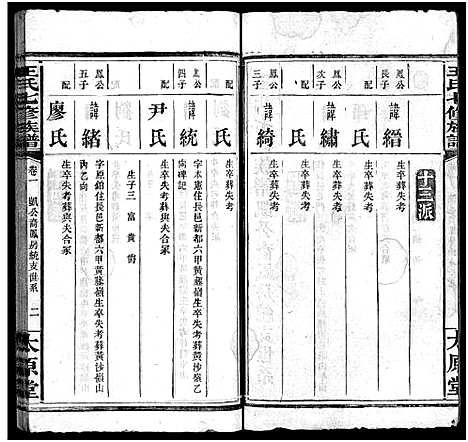 王氏七修族譜
太原堂
十三派
鳳公
諱縉
生卒葬失考
配
氏
生卒葬失考
鳳公次子
諱繡
生卒葬失考
配
氏
生卒葬失考
鳳公三子
諱綺
生卒葬失考
鳳公四子
諱統
字本憲住長邑新都六甲黃藤嶺生卒失考葬黃沙嶺乙
向碑記
配
尹氏
生卒葬失考
鳳公五子
諱緒
字原錦住長邑新都六甲黃藤嶺生卒失考葬黃沙嶺山
內乙向
生子三 富 貴
配
廖氏
生卒失考葬與夫合冢
王氏七修族譜
卷一 凱公裔鳳房統支世系 二
太原堂